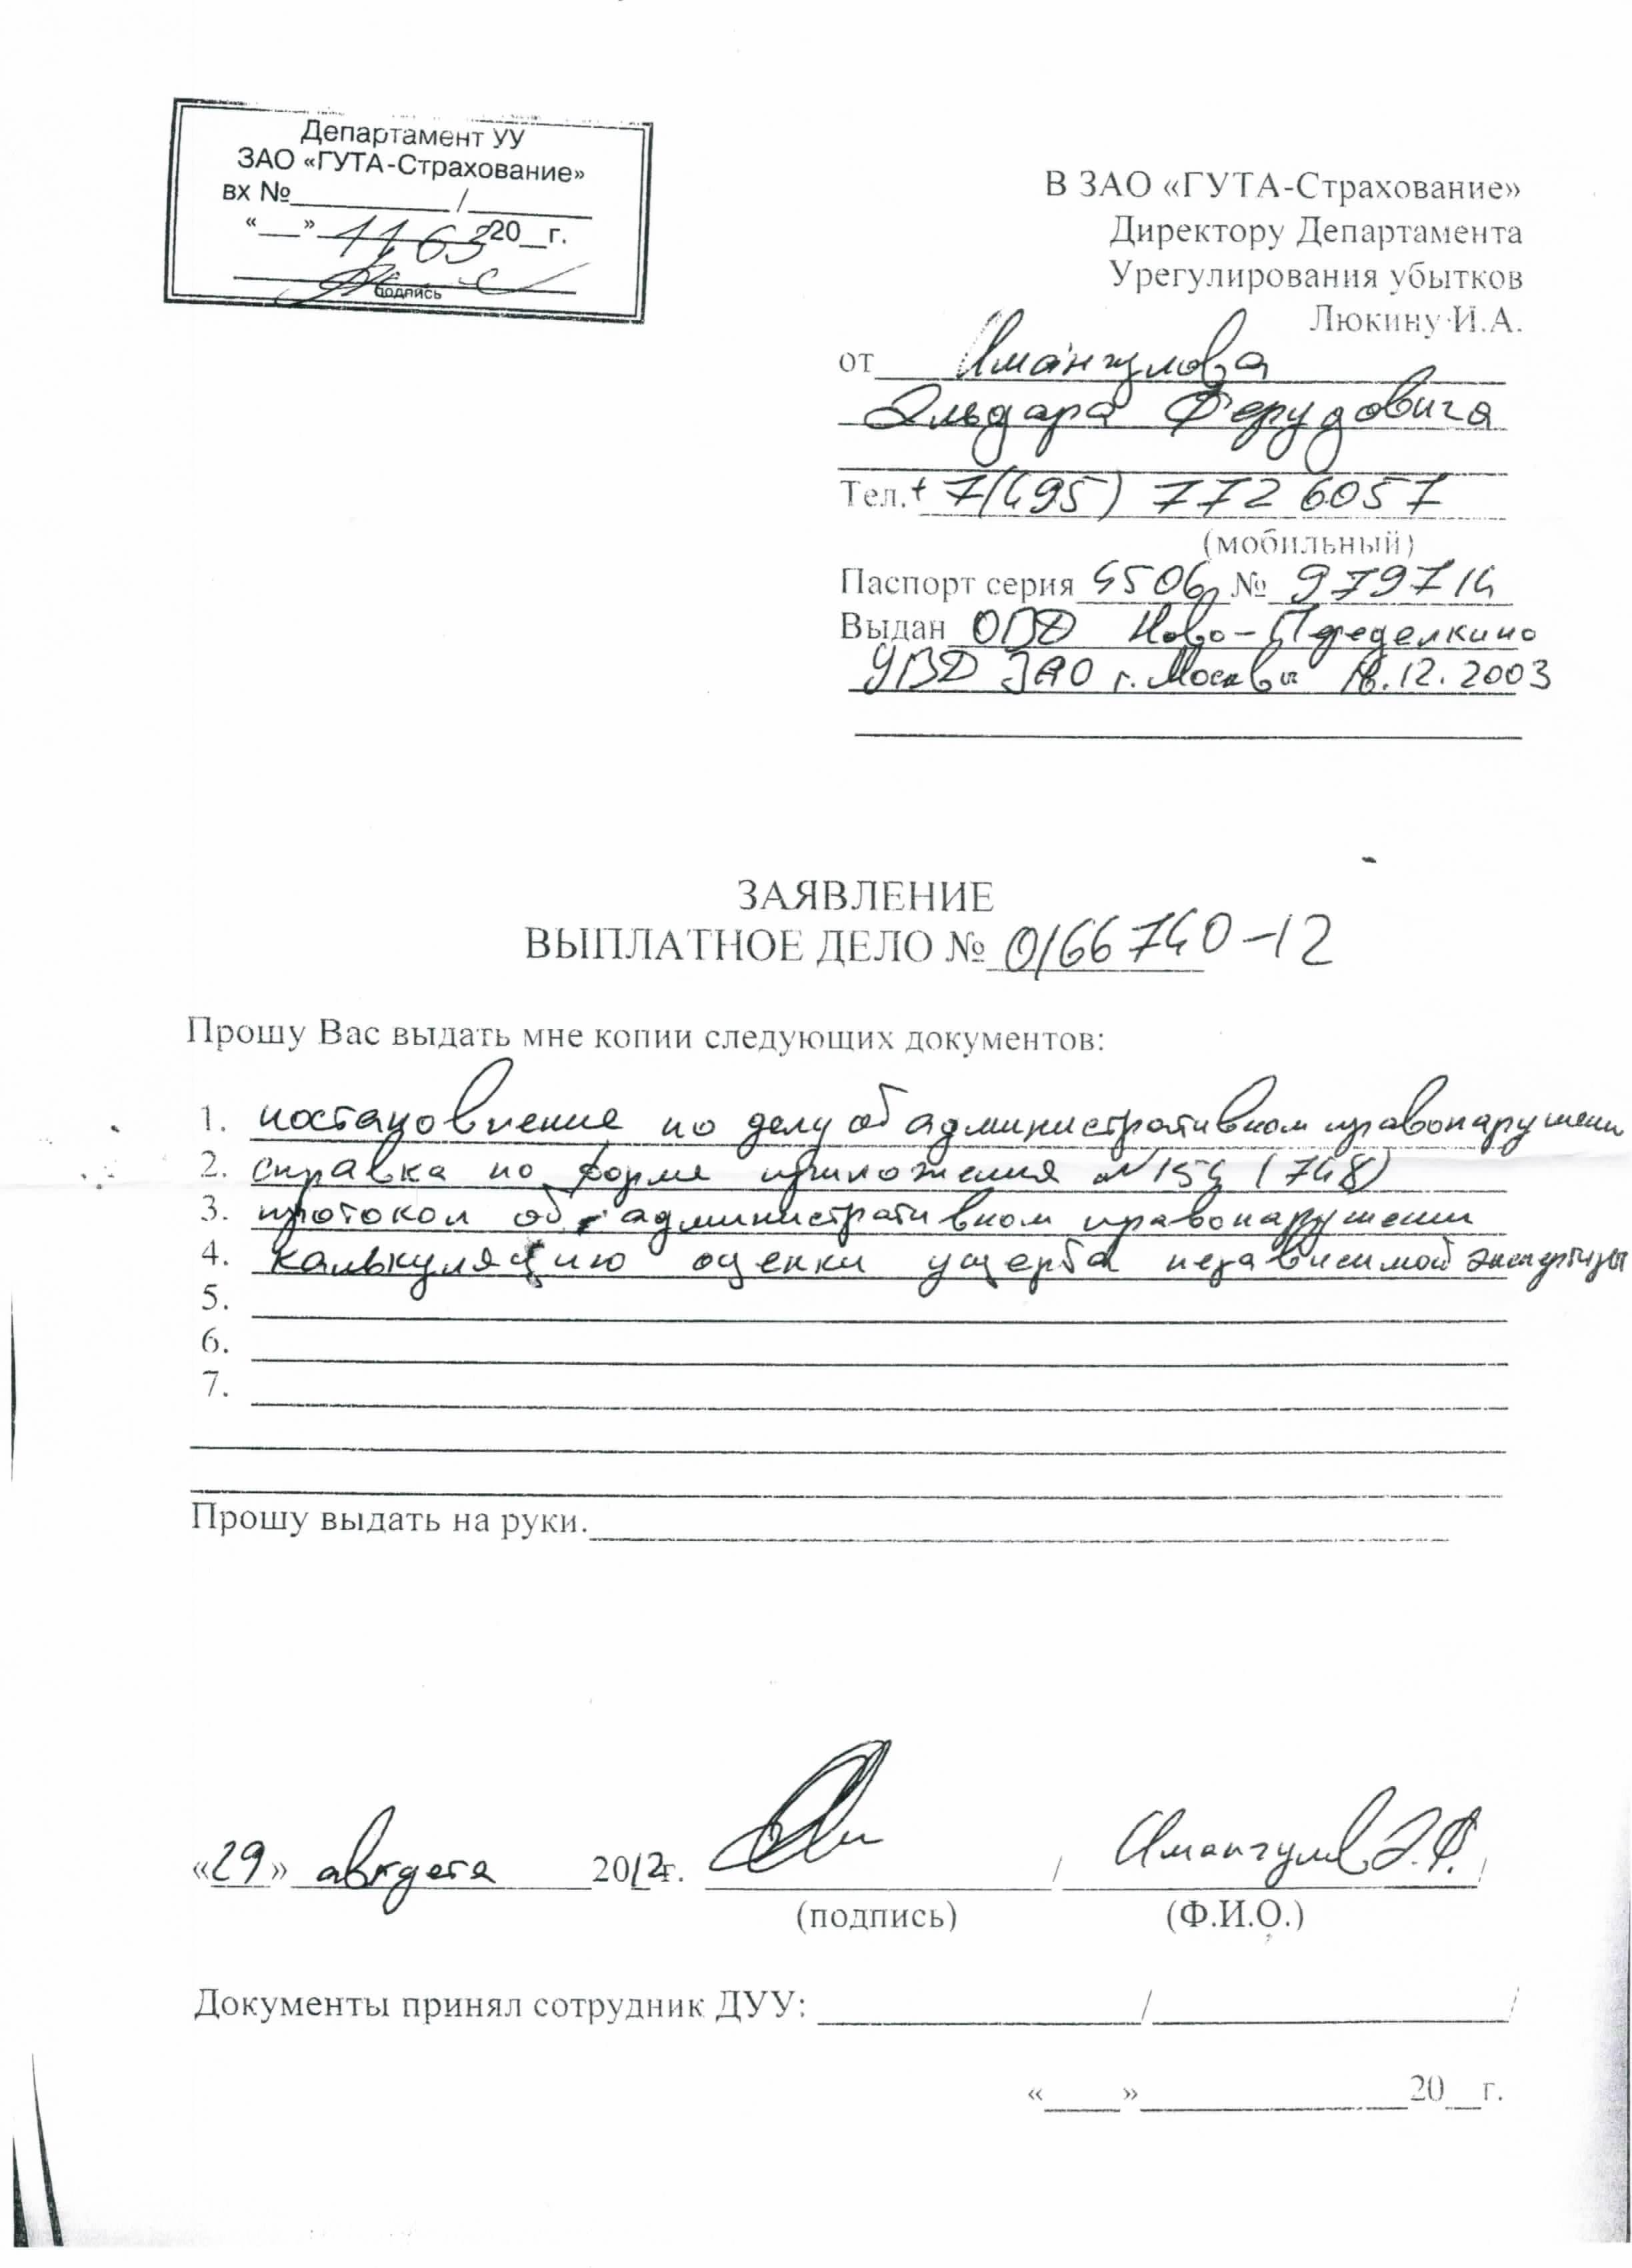 Департамент УУ
ЗАО «ГУТА-Страхование»
вх №__________/________
«__» 1163 20__г.
подпись
В ЗАО «ГУТА-Страхование»
Директору Департамента
Урегулирования убытков
Люкину И.А.
от Имангулова
Эльдара Ферудовича
Тел. +7(495) 772 6057
(мобильный)
Паспорт серия 4506 № 979714
Выдан ОВД Ново-Переделкино
УВД ЗАО г. Москвы 18.12.2003
ЗАЯВЛЕНИЕ
ВЫПЛАТНОЕ ДЕЛО № 0166740-12
Прошу Вас выдать мне копии следующих документов:
1. постановление по делу об административном правонарушении
2. справка по форме приложения №154 (748)
3. протокол об административном правонарушении
4. калькуляцию оценки ущерба независимой экспертизы
5.
6.
7.
Прошу выдать на руки.
«29» августа 2012г. / Имангулов Э.Ф. /
(подпись) (Ф.И.О.)
Документы принял сотрудник ДУУ: ____________/____________/
«____»______________20__г.